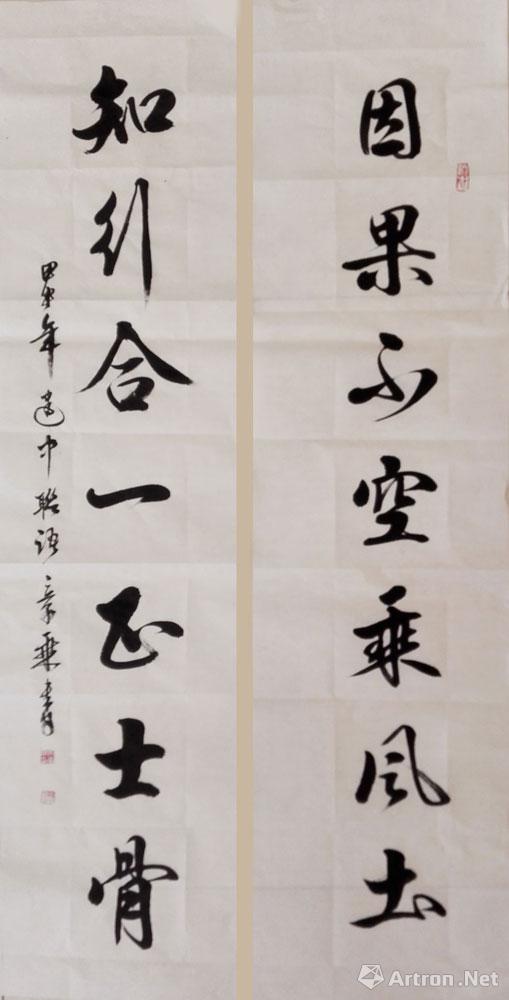 因果不空乘风土
知行合一正士骨
年 中联语 乘书
Artron.Net